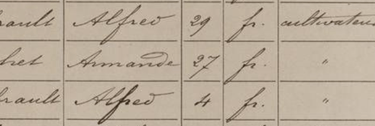 rault Alfred 29 fr. cultivateur
het Armande 27 fr. "
rault Alfred 4 fr. "